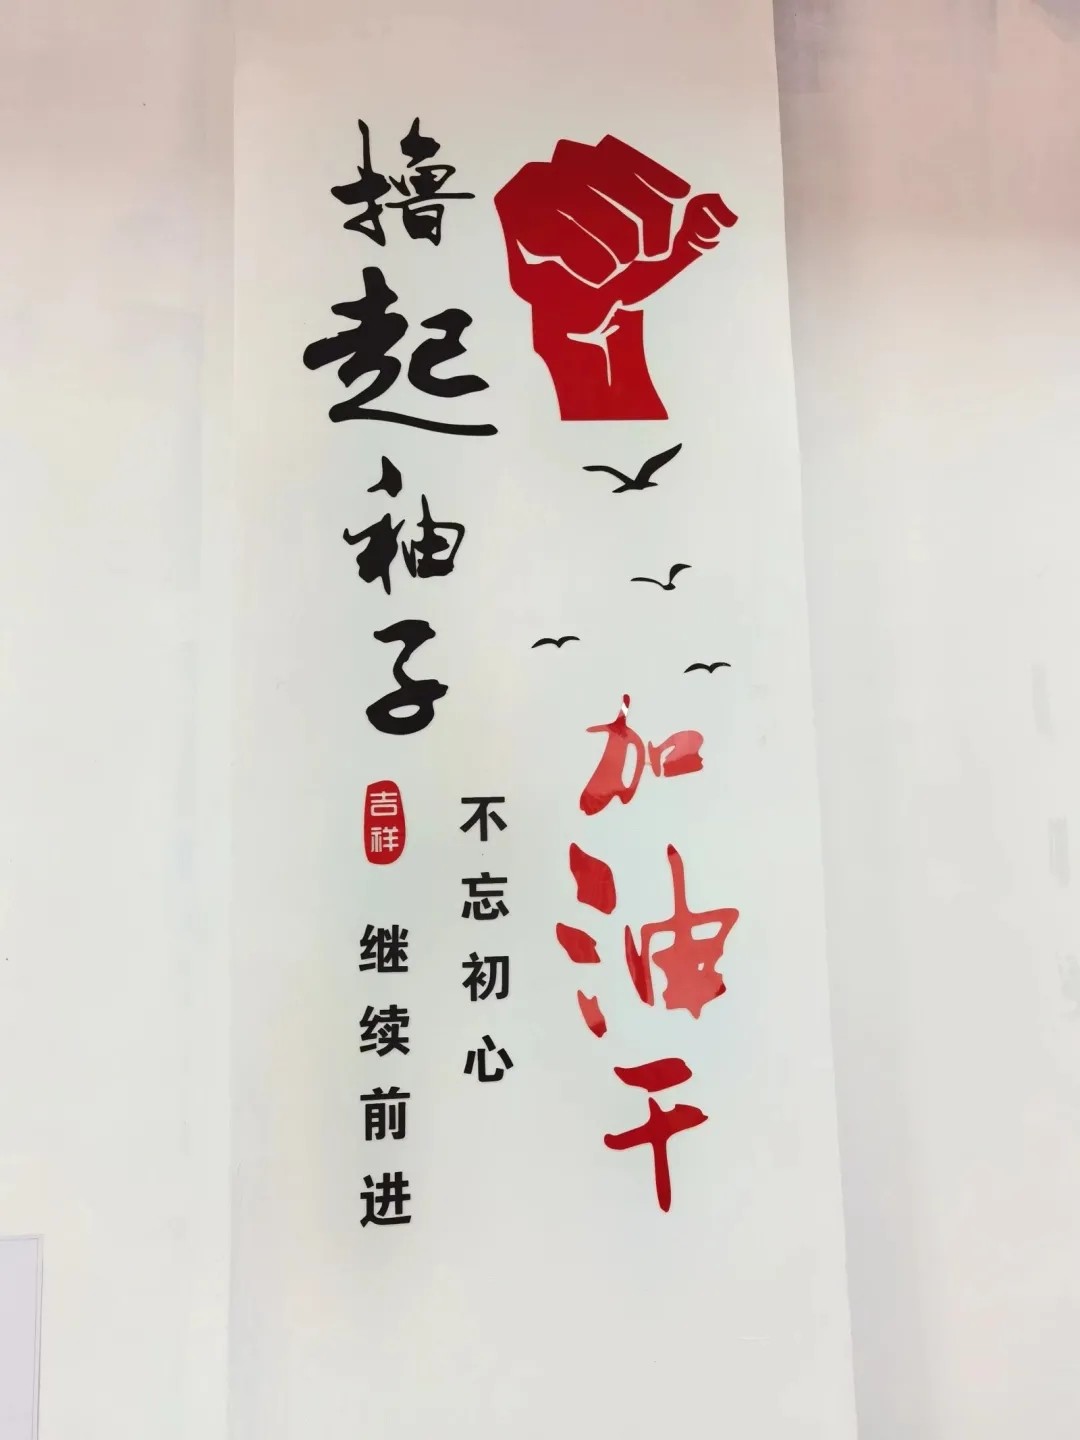 撸起袖子
加油干
吉祥
不忘初心
继续前进